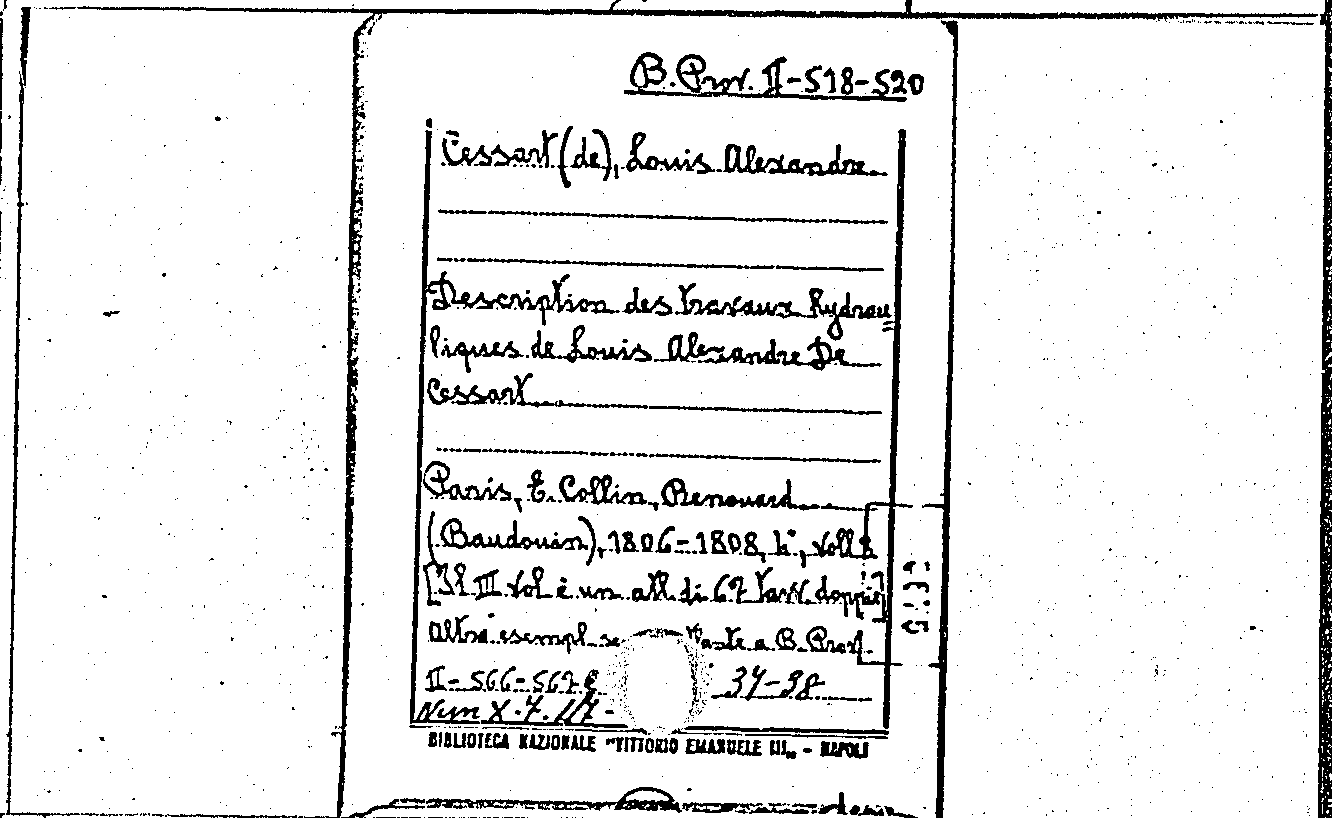 B. Prov. II-518-520
Cessart (de), Louis Alexandre.
Description des travaux hydrau=
liques de Louis Alexandre De
Cessart
Paris, E. Collin, Renouard
(Baudouin), 1806-1808, 4°, voll
[Il III vol è un atl. di 67 tavv. doppie]
Altri esempl. se a B. Prov.
II-566-567 e 34-38
Num X.7.
BIBLIOTECA NAZIONALE "VITTORIO EMANUELE III„ - NAPOLI